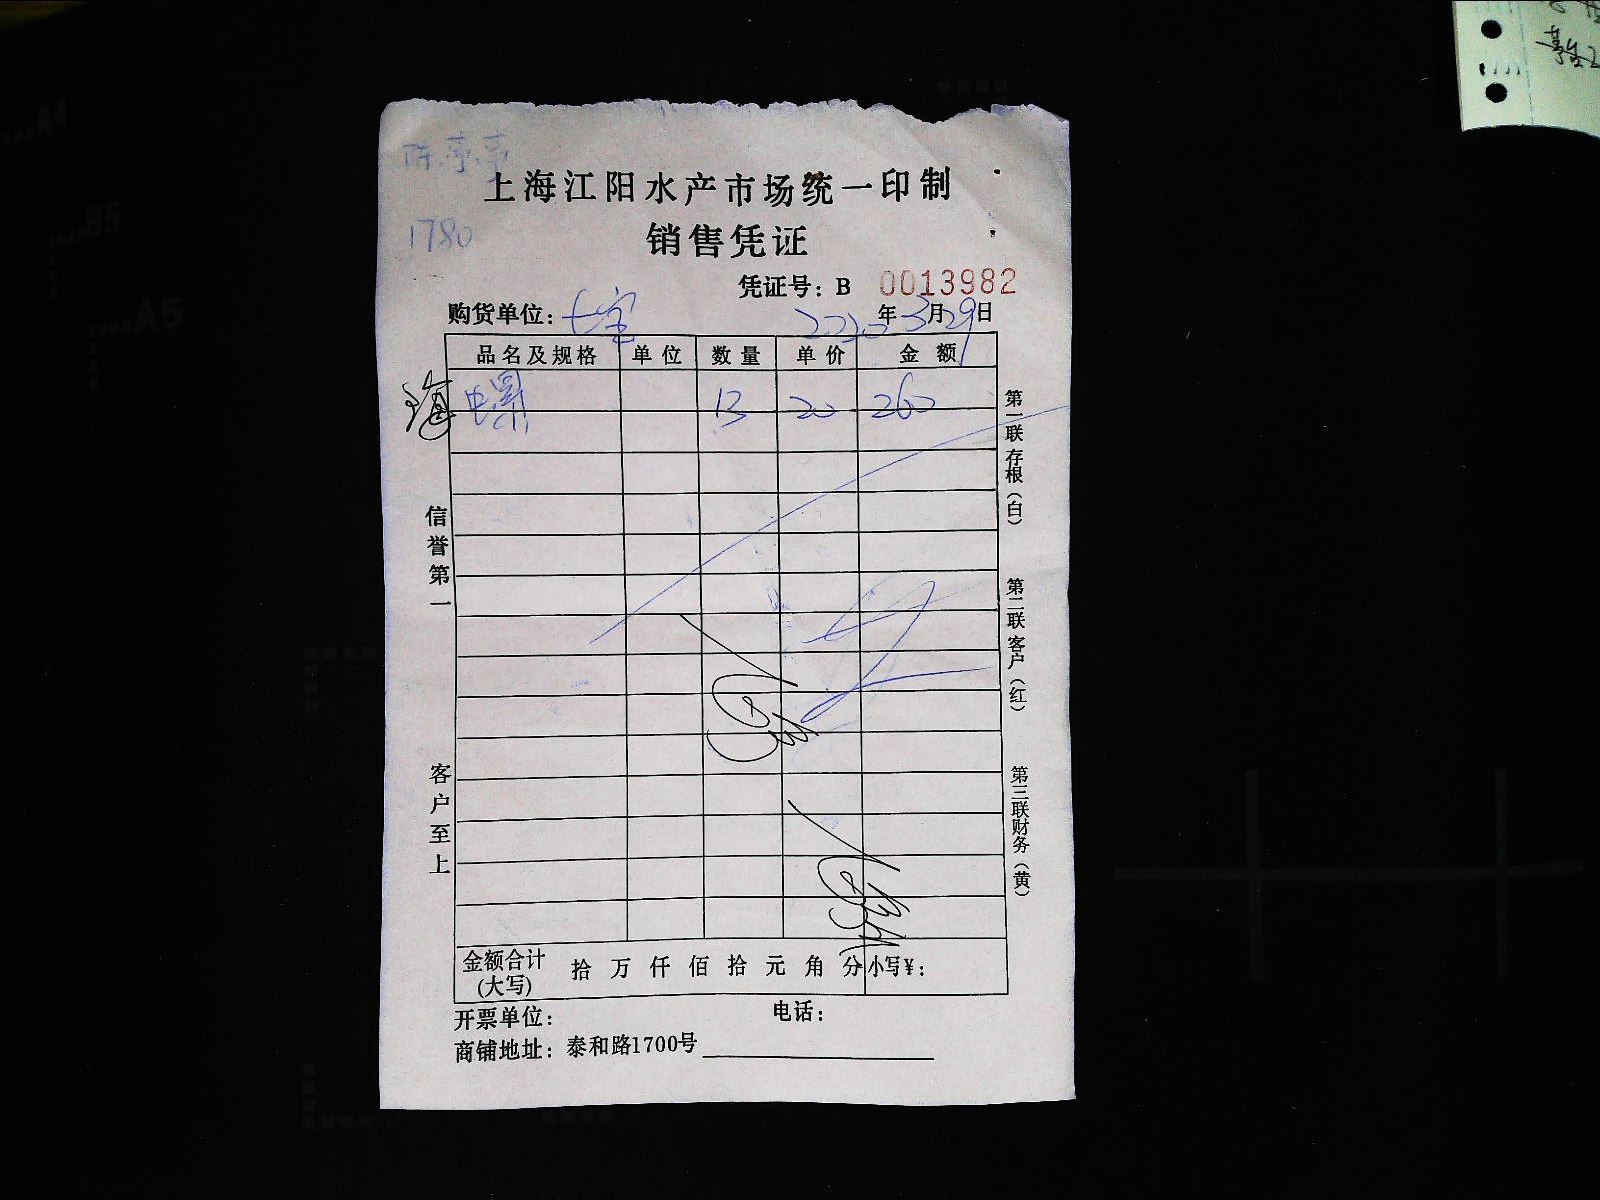 陈亭亭
上海江阳水产市场统一印制
1780
销售凭证
凭证号：B 0013982
购货单位：七宝 2020年3月29日
品名及规格 单位 数量 单价 金额
海螺 13 20 260
信誉第一
客户至上
第一联存根（白）
第二联客户（红）
第三联财务（黄）
金额合计(大写) 拾 万 仟 佰 拾 元 角 分 小写¥：
开票单位： 电话：
商铺地址：泰和路1700号